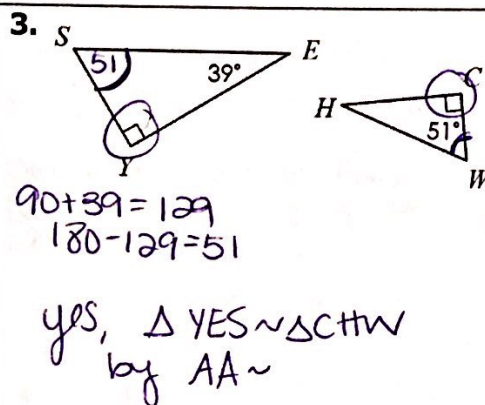 3.
S
51
39°
E
Y
H
C
51°
W
90+39=129
180-129=51
yes, Δ YES ~ ΔCHW
by AA~